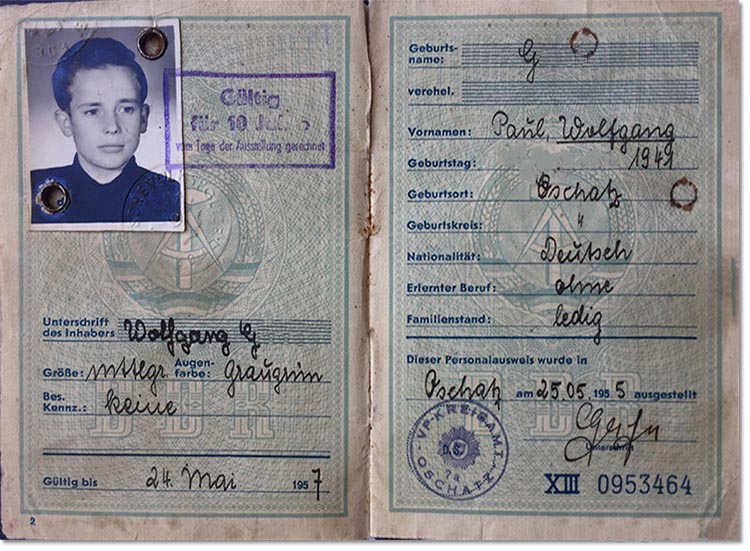 Gültig
für 10 Jahre
vom Tage der Ausstellung gerechnet
Unterschrift
des Inhabers Wolfgang G
Größe: mttlgr. Augenfarbe: Graugrün
Bes.
Kennz.: keine
Gültig bis 24. Mai 1957
2
Geburtsname: G
verehel.
Vornamen: Paul, Wolfgang
Geburtstag: 1941
Geburtsort: Oschatz
Geburtskreis: "
Nationalität: Deutsch
Erlernter Beruf: ohne
Familienstand: ledig
Dieser Personalausweis wurde in
Oschatz am 25.05.1955 ausgestellt
VP-KREISAMT
D.S.
OSCHATZ
Unterschrift
XIII 0953464
DDR
DDR